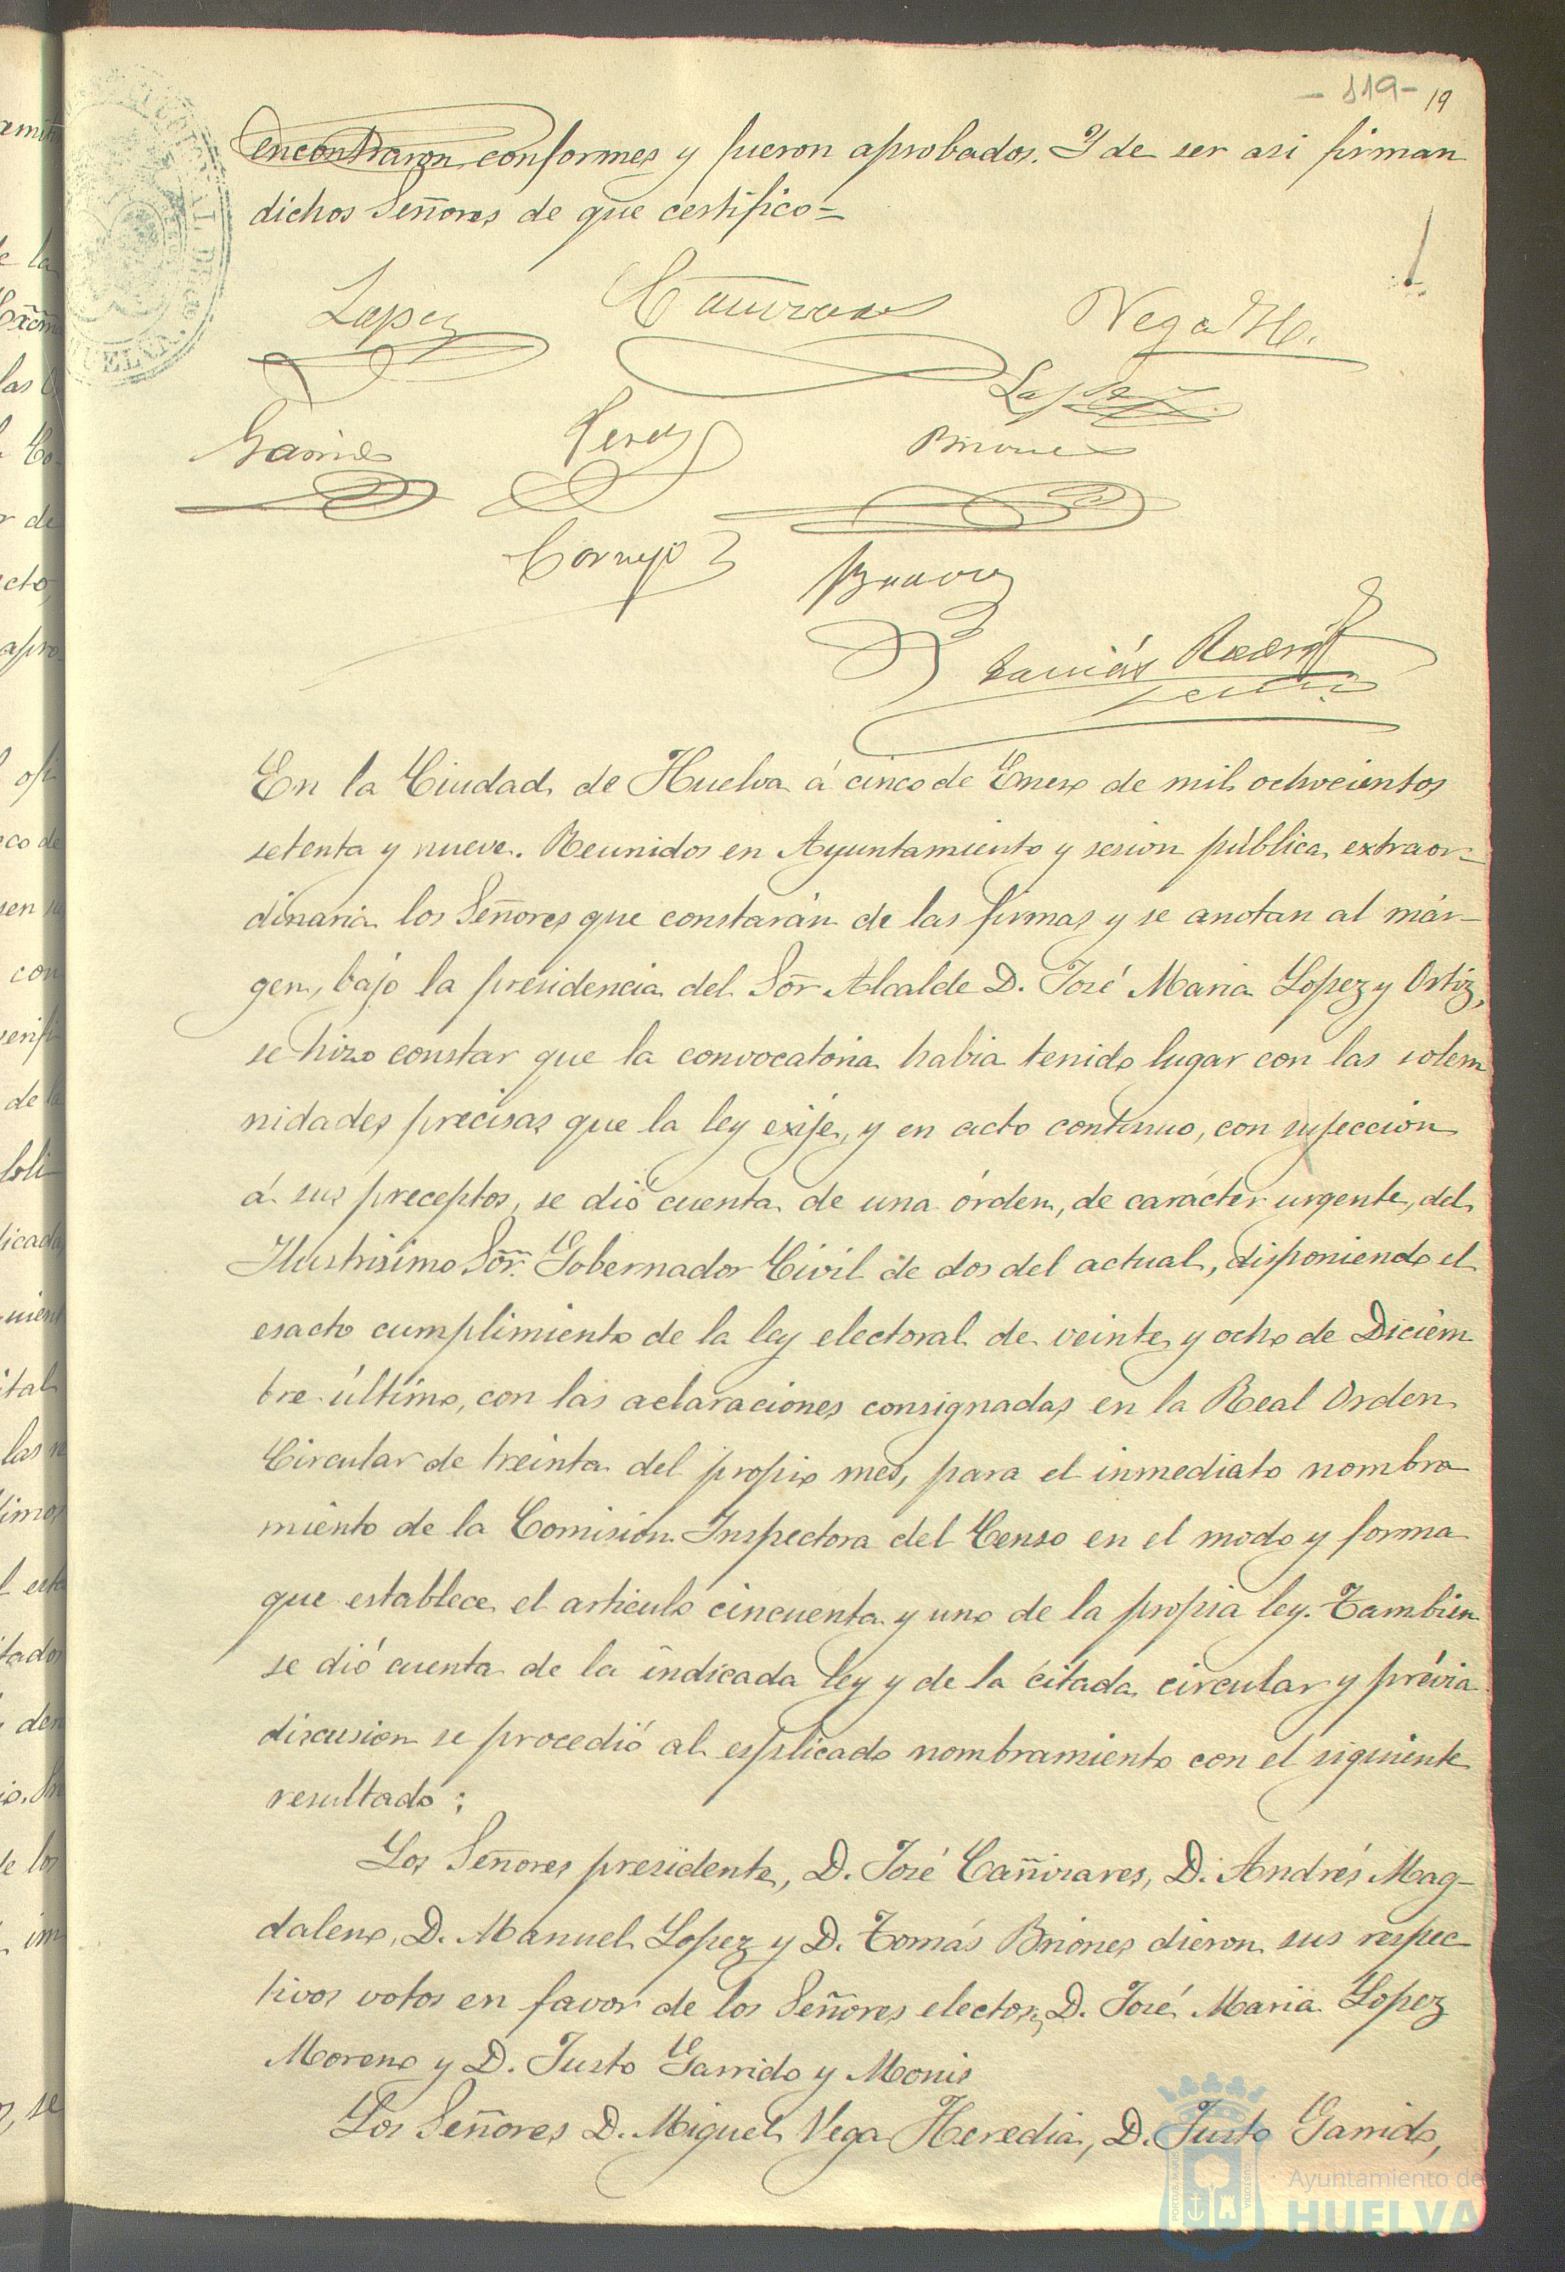 - 119 - 19
encontraron conformes y fueron aprobados. Y de ser asi firman
dichos Señores de que certifico=
Lopez Cañizares Vega H.
Lopez
Garrido Perez Briones
Cornejo
En la Ciudad de Huelva á cinco de Enero de mil ochocientos
setenta y nueve. Reunidos en Ayuntamiento y sesion pública extraor-
dinaria los Señores que constarán de las firmas y se anotan al már-
gen, bajo la presidencia del Sor Alcalde D. José Maria Lopez y Ortiz,
se hizo constar que la convocatoria habia tenido lugar con las solem
nidades precisas que la ley exije, y en acto continuo, con sujeccion
á sus preceptos, se dió cuenta de una órden, de carácter urgente, del
Ilustrisimo Sor. Gobernador Civil de dos del actual, disponiendo el
esacto cumplimiento de la ley electoral de veinte y ocho de Diciem
bre último, con las aclaraciones consignadas en la Real Orden
Circular de treinta del propio mes, para el inmediato nombra
miento de la Comision Inspectora del Censo en el modo y forma
que establece el articulo cincuenta y uno de la propia ley. Tambien
se dió cuenta de la indicada ley y de la citada circular y prévia
discusion se procedió al esplicado nombramiento con el siguiente
resultado:
Los Señores presidente, D. José Cañizares, D. Andrés Mag-
daleno, D. Manuel Lopez y D. Tomás Briones dieron sus respec
tivos votos en favor de los Señores electores, D. José Maria Lopez
Moreno y D. Justo Garrido y Monis
Los Señores D. Miguel Vega Heredia, D. Justo Garrido,
Ayuntamiento de
HUELVA